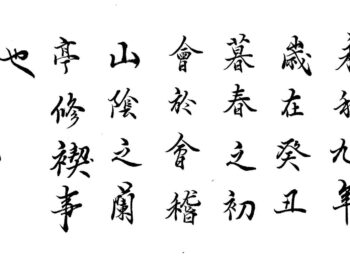 永和九年
歲在癸丑
暮春之初
會於會稽
山陰之蘭
亭修禊事
也